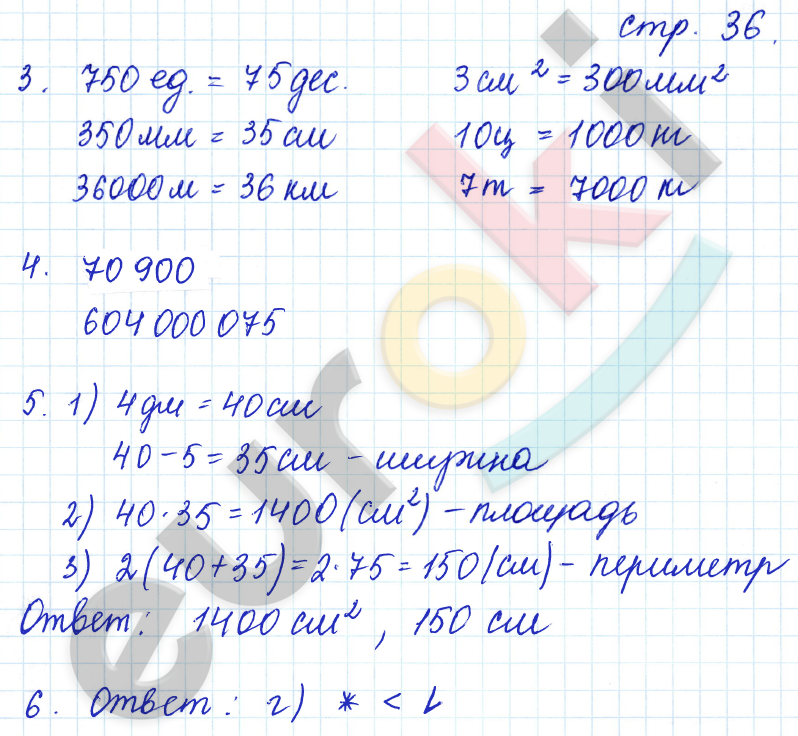 стр. 36.
3. 750 ед. = 75 дес. 3 см² = 300 мм²
350 мм = 35 см 10 ц = 1000 кг
36000 м = 36 км 7 т = 7000 кг
4. 70 900
604 000 075
5. 1) 4 дм = 40 см
40 - 5 = 35 см - ширина
2) 40 · 35 = 1400 (см²) - площадь
3) 2(40+35) = 2 · 75 = 150 (см) - периметр
Ответ: 1400 см², 150 см
6. Ответ: г) * < L
euroki